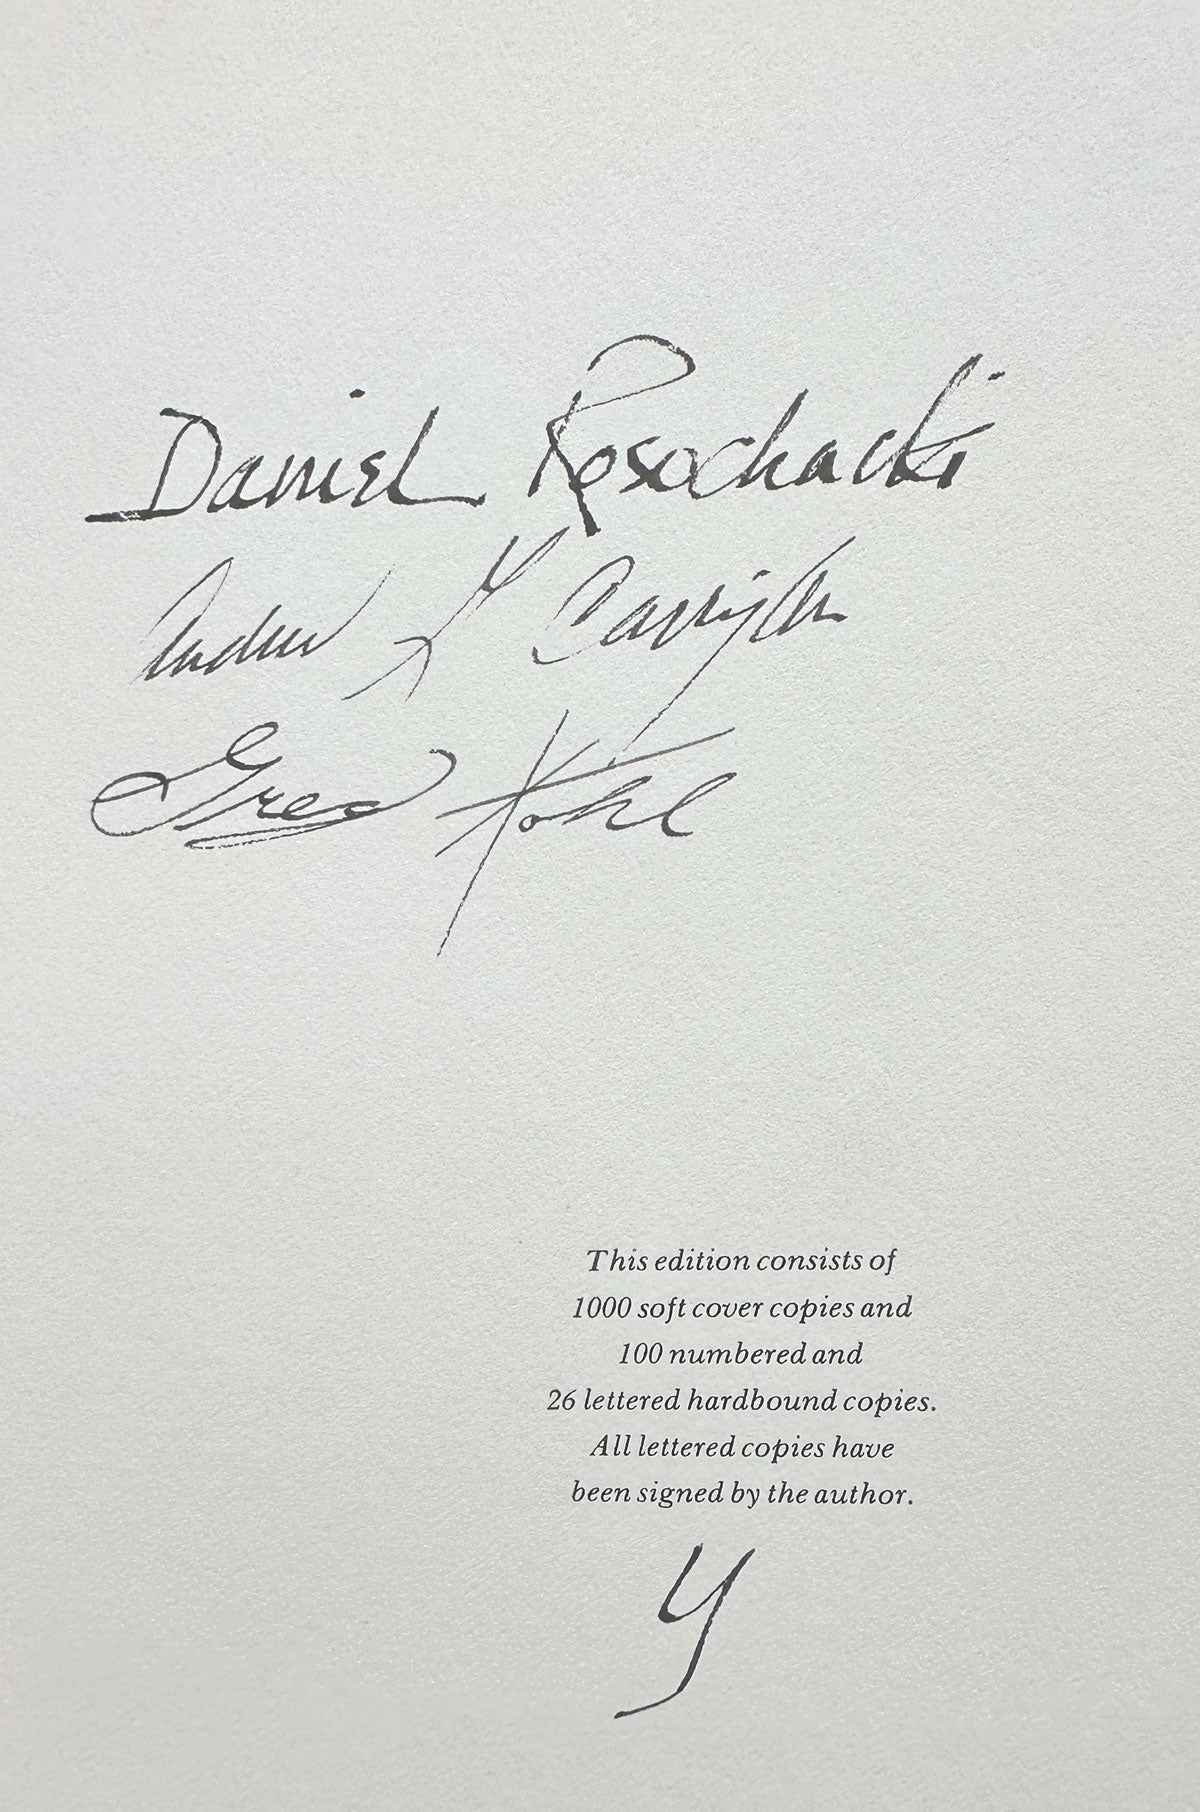 Daniel Rosochacki
Andrew G Carrigan
Greg Kohl
This edition consists of
1000 soft cover copies and
100 numbered and
26 lettered hardbound copies.
All lettered copies have
been signed by the author.
Y